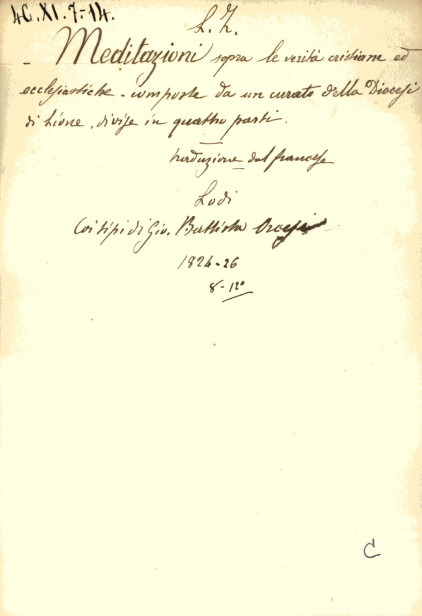 4C. XI. 7-14.
L. Z.
- Meditazioni sopra le verità cristiane ed
ecclesiastiche - composte da un curato della Diocesi
di Lione, divise in quattro parti.
traduzione dal francese
Lodi
Coi tipi di Gio. Battista Orcesi
1824-26
8-12°
C